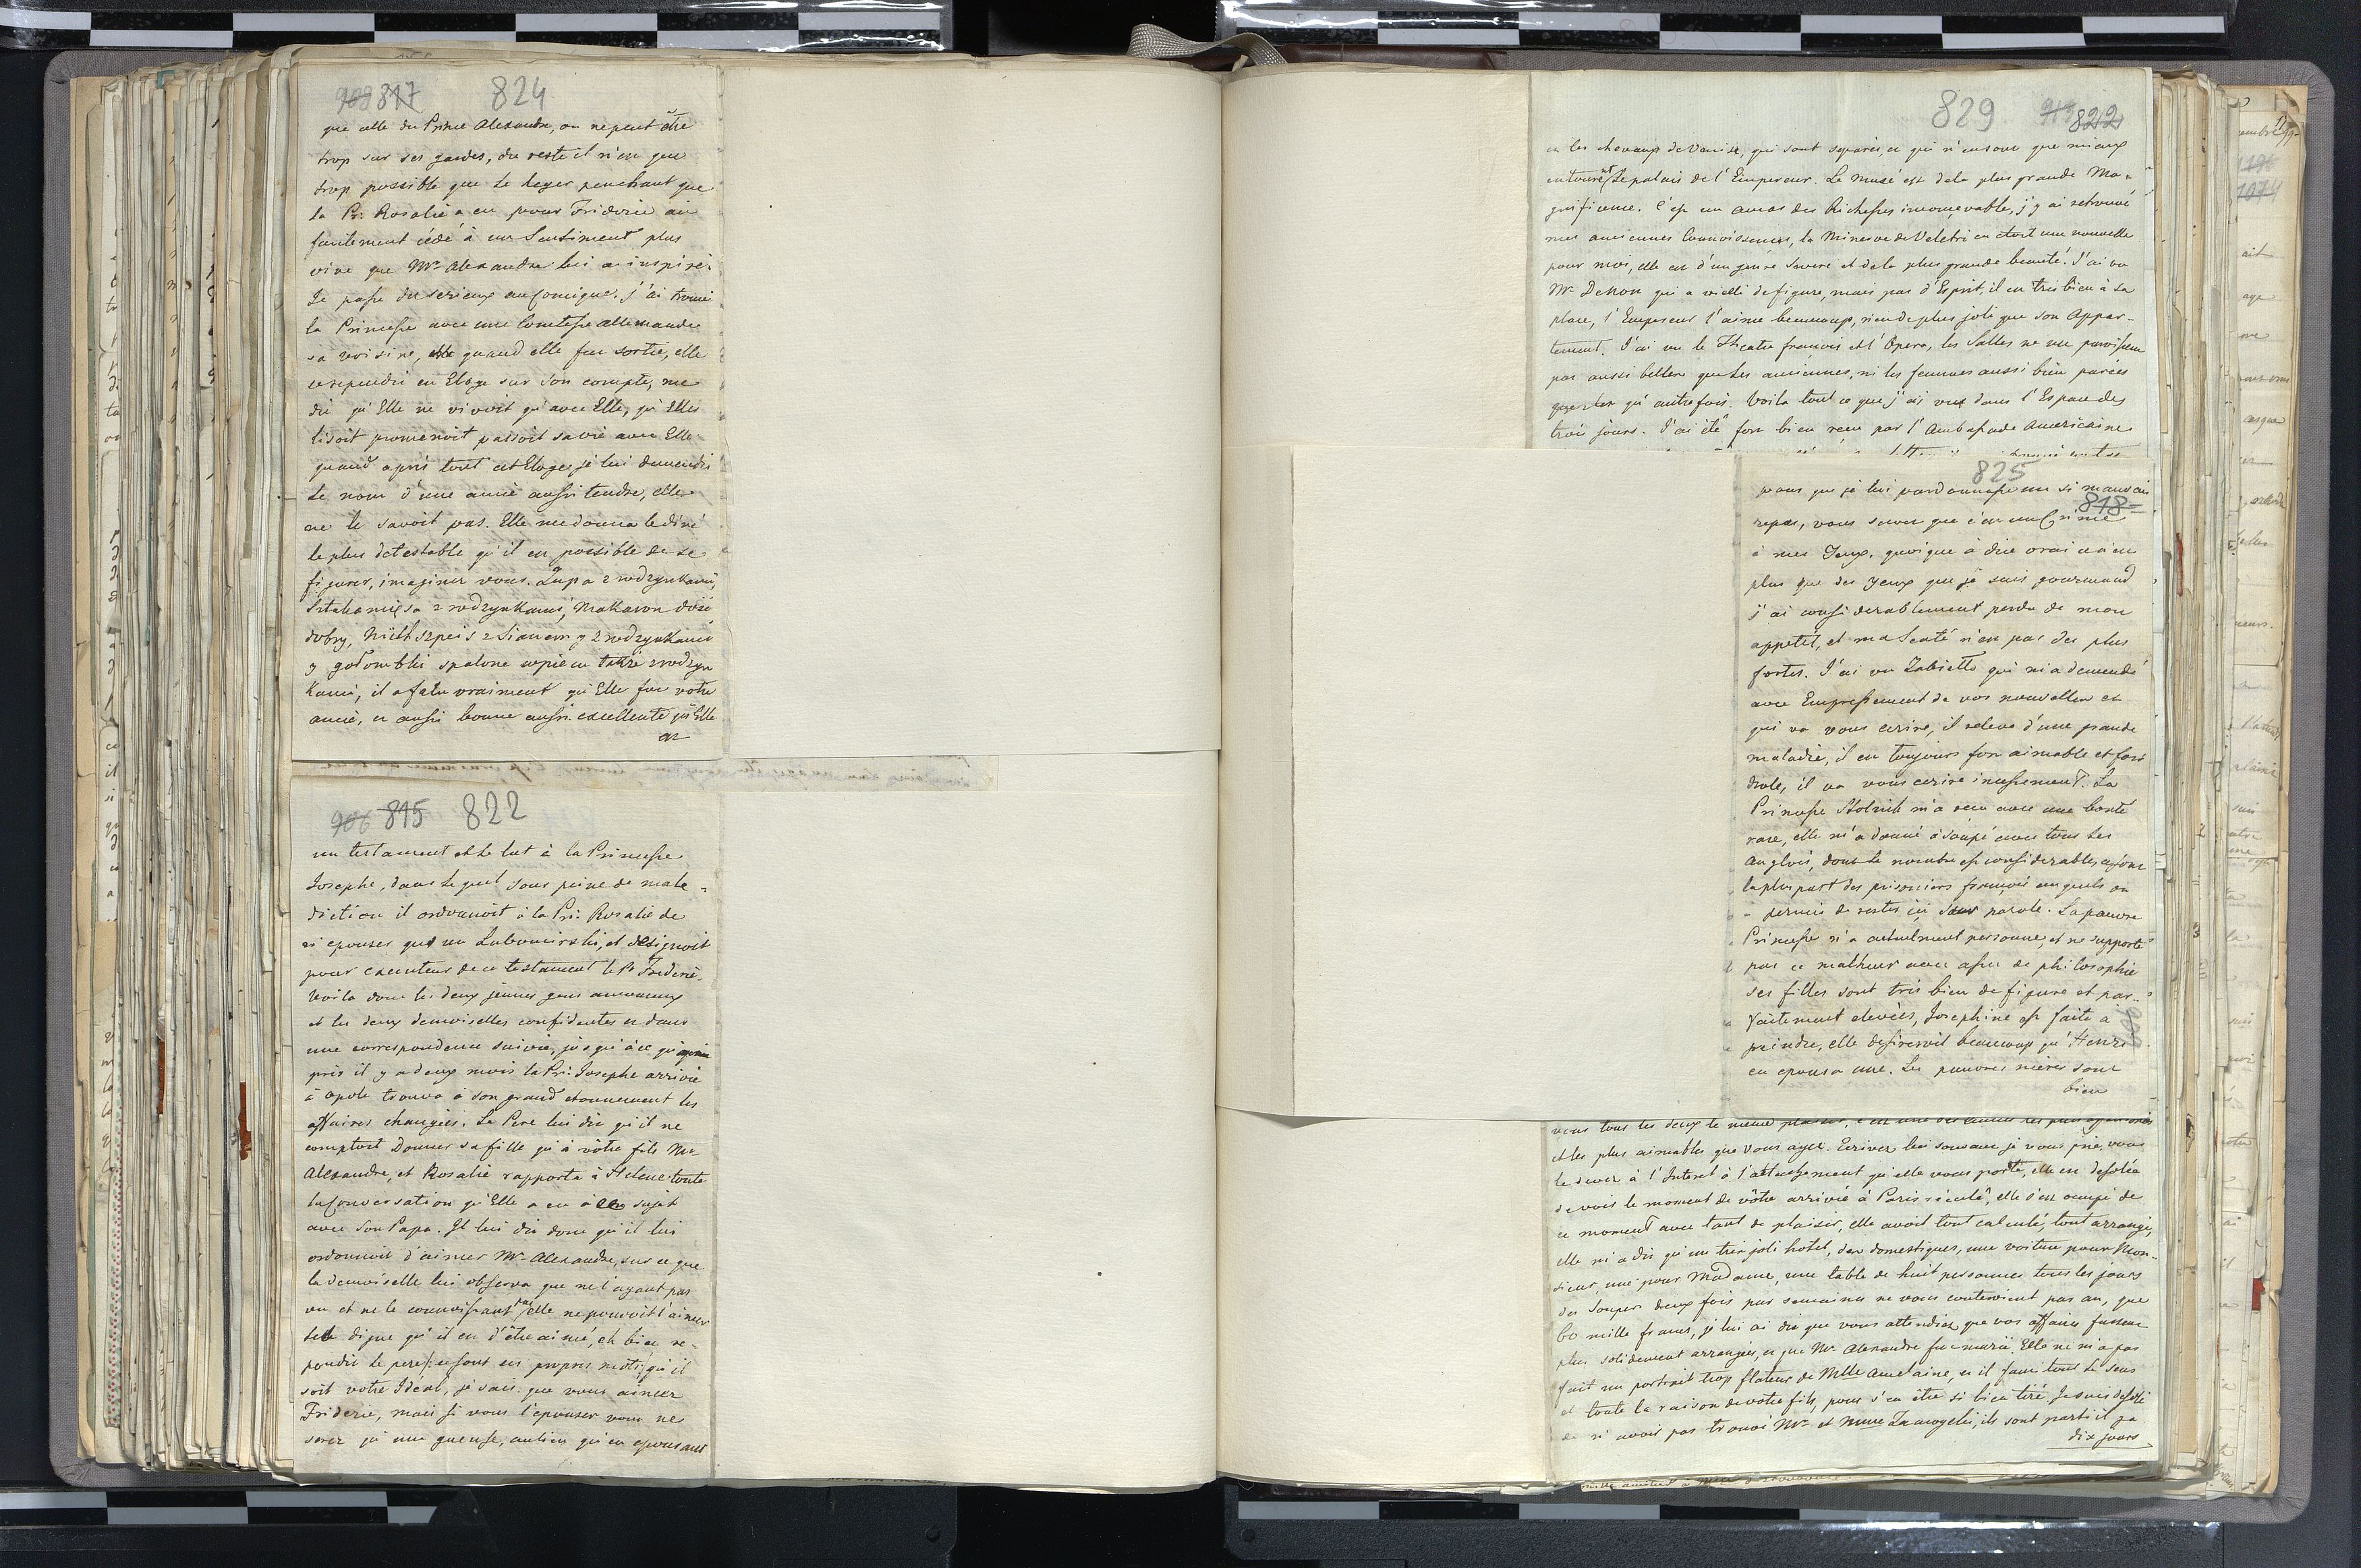 909 817 824
que celle du Prince Alexandre, on ne peut être
trop sur ses gardes, du reste il n'en que
trop possible que le leger penchant que
la Pr: Rosalie a eu pour Frideric ait
facilement cédé à un Sentiment plus
vive que Mr Alexandre lui a inspiré.
Je passe du serieux au Comique. J'ai trouvé
la Princesse avec une Comtesse allemande
sa voisine, quand elle fut sortie, elle
se rependit en Eloge sur son compte, me
dit qu'Elle ne vivoit qu'avec Elle, qu'Elle
lisoit promenoit passoit sa vie avec Elle
quand après tout cet Eloges je lui demendis
le nom d'une amie aussi tendre, elle
ne le savoit pas. Elle me donna le diné
le plus detestable qu'il en possible de se
figurer, imaginez vous. Zupa z rodzynkami,
Sztukamięsa z rodzynkami, Makaron dosić
dobry, z Sianem y z rodzynkami
y gołombki spalone w piecu także z rodzyn
kami, il a falu vraiment qu'Elle fut votre
amie, et aussi bonne aussi excellente qu'Elle
en
906 815 822
un testament et le lut à la Princesse
Josephe, dans le quel sous peine de male-
diction il ordonnoit à la Pr: Rosalie de
n'epouser que un Lubomirski, et désignoit
pour executeur de ce testament le Pr Frideric.
Voila donc les deux jeunes gens amoureux
et les deux demoiselles confidentes et dans
une correspondence suivie, jusqu'à ce qu'après
près il y a deux mois la Pr: Josephe arrivée
à Opole trouva à son grand etonnement les
affaires changées. Le Pere lui dit qu'il ne
comptoit Donner sa fille qu'à vôtre fils Mr
Alexandre, et Rosalie rapporta à Helene toute
la Conversation qu'Elle a eu à ce sujet
avec Son Papa. Il lui dit donc qu'il lui
ordonnoit d'aimer Mr Alexandre, sur ce que
la demoiselle lui observa que ne l'ayant pas
vu et ne le connoissant pas elle ne pouvoit l'aimer
tel digne qu'il en d'être aimé, eh bien re-
pondit le pere /: ce sont ses propres mots :/ qu'il
soit votre Ideal, je sais que vous aimez
Frideric, mais si vous l'epouser vous ne
serez qu'une gueuse, au lieu qu'en epousant
829 913 822
et les chevaux de Venise, qui sont separés, ce qui n'ensont que mieux
entourent le palais de l'Empereur. Le Musé est dela plus grande Ma-
gnificence. C'est un amas des Richesses inconcevable, j'y ai retrouvé
mes anciennes Connoissences, la Minerve de Veletri en etoit une nouvelle
pour moi, elle est d'un genre severe et dela plus grande beauté. J'ai vu
Mr Denon qui a vielli de figure, mais pas d'Esprit, il en très bien à sa
place, l'Empereur l'aime beaucoup, rien de plus joli que son Appar-
tement. J'ai vu le Theatre françois et l'Opera, les Salles ne me paroissent
pas aussi belles que les anciennes, ni les femmes aussi bien parées
qu'autrefois. Voila tout ce que j'ai vue dans l'Espace des
trois jours. J'ai été fort bien recu par l'Ambassade Américaine
825
818
pour que je lui pardonnasse un si mauvais
repas, vous savez que c'en un Crime
à mes Yeux, quoique à dire vrai ce n'en
plus que des yeux que je suis gourmand
j'ai considerablement perdu de mon
appetit, et ma Senté n'en pas des plus
fortes. J'ai vu Zabiello qui m'a demendé
avec Empressement de vos nouvelles et
qui va vous ecrire, il releve d'une grande
maladie, il en toujours fort aimable et fort
drole, il va vous ecrire incessement. La
Princesse m'a recu avec une bonté
rare, elle m'a donné à soupé avec tous les
Anglois, dont le nombre est considerable, ce sont
la plus part des prisoniers françois auquels on
a permis de rester ici sur parole. La pauvre
Princesse n'a actuelment personne, et ne supporte
pas ce malheur avec assez de philosophie
ses filles sont très bien de figure et par-
faitement elevées, Josephine est faite a
peindre, elle desireroit beaucoup qu'Henri
en epousa une. Les pauvres mères sont
bien
909
vous tous les deux le même plaisir, c'est une des amies les plus
et les plus aimables que vous ayez. Ecrivez lui souvent je vous prie, vous
le devez à l'Interet à l'attachement qu'elle vous porte, elle en desolée
de voir le moment de vôtre arrivée à Paris réculé, elle s'est occupé de
ce moment avec tant de plaisir, elle avoit tout calculé, tout arrangé,
elle m'a dit qu'un très joli hotel, des domestiques, une voiture pour Mon-
sieur, une pour Madame, une table de huit personnes tous les jours
des Souper deux fois par semaines ne vous couteroient par an, que
60 mille francs, je lui ai dit que vous attendiez que vos affaires fussent
plus solidement arrangées, et que Mr Alexandre fut marié. Elle ne m'a pas
fait un portrait trop flateur de Mlle Amelaine, et il faut tout le sens
et toute la raison de votre fils, pour s'en être si bien tiré. Je suis desolé
de n'avoir pas trouvé Mr et Mme Zamoyski, ils sont parti il ya
dix jours